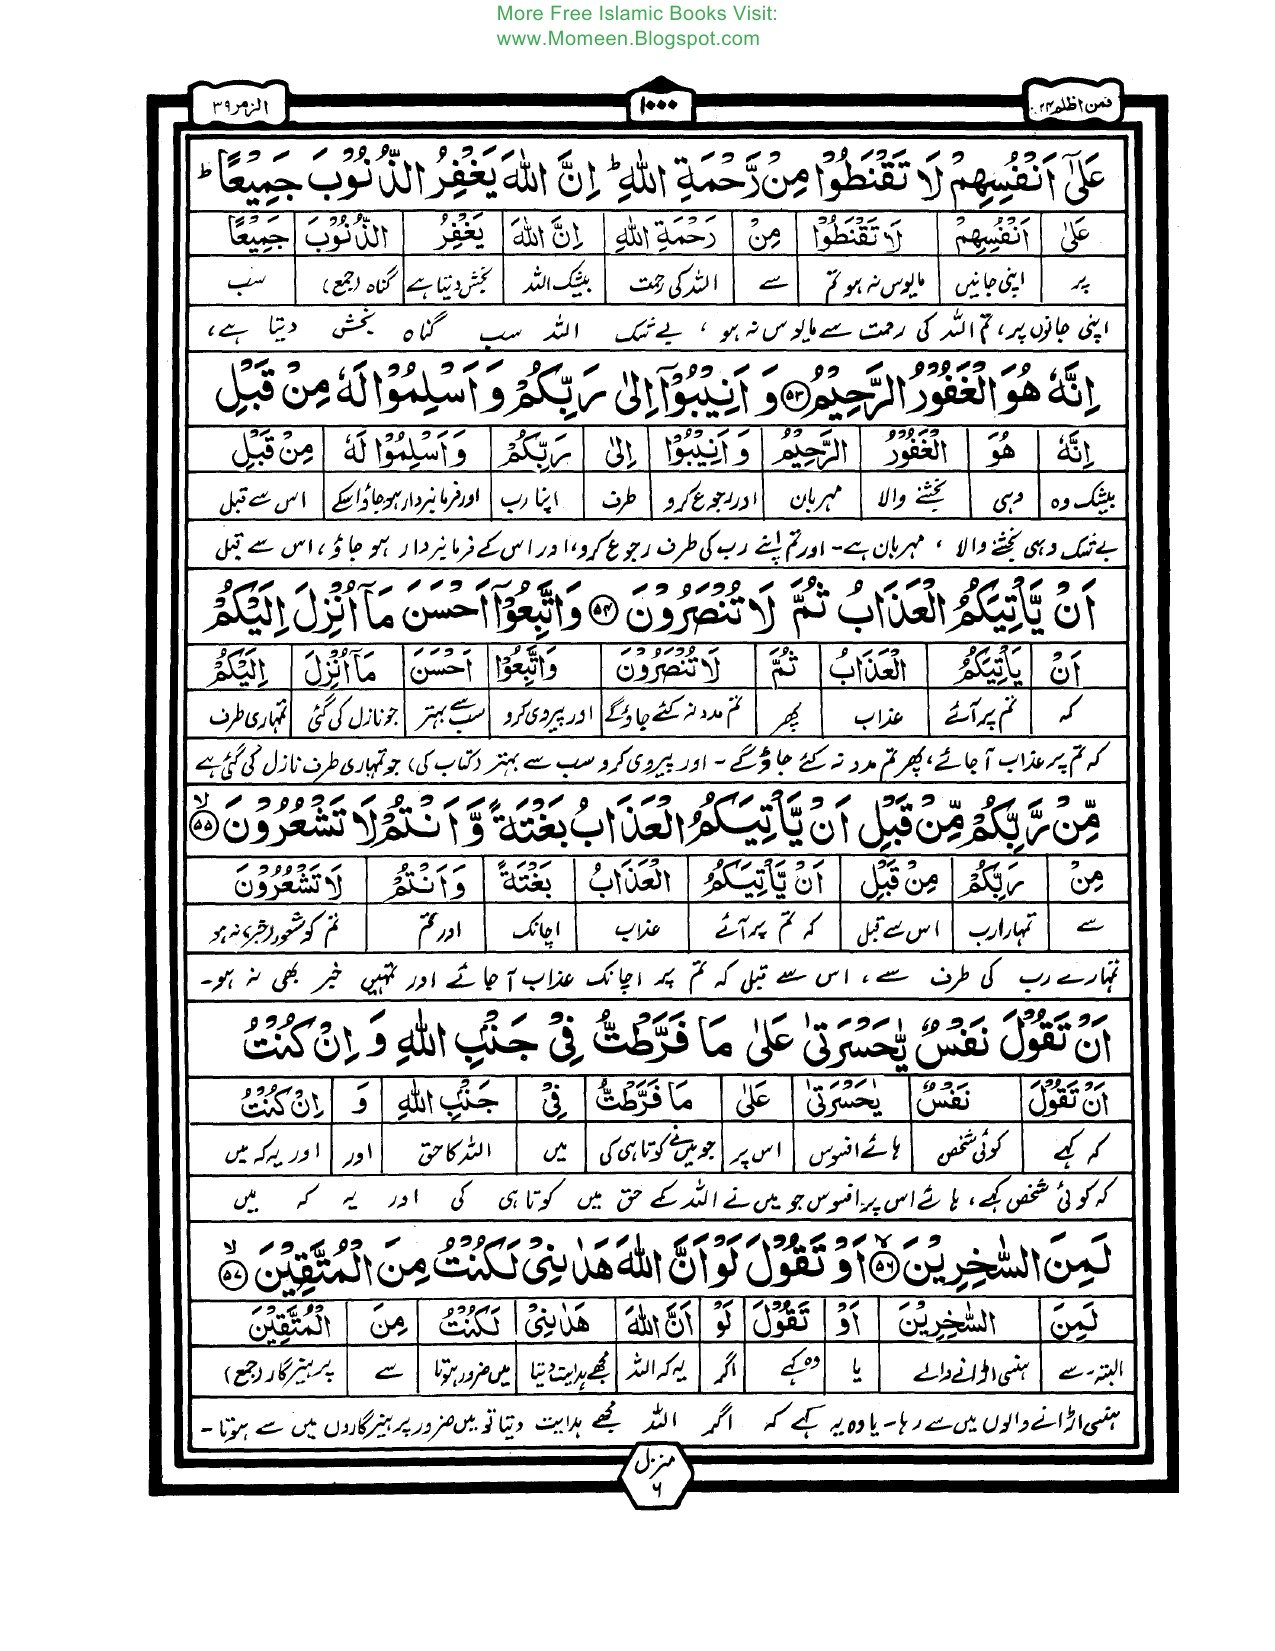 More Free Islamic Books Visit:
www.Momeen.Blogspot.com
فمن اظلم ۲۴ ۱۰۰۰ الزمر ۳۹
عَلٰٓى اَنْفُسِهِمْ لَا تَقْنَطُوْا مِنْ رَّحْمَةِ اللّٰهِ ؕ اِنَّ اللّٰهَ يَغْفِرُ الذُّنُوْبَ جَمِيْعًا ؕ
عَلٰٓى اَنْفُسِهِمْ لَا تَقْنَطُوْا مِنْ رَحْمَةِ اللّٰهِ اِنَّ اللّٰهَ يَغْفِرُ الذُّنُوْبَ جَمِيْعًا
پر اپنی جانیں مایوس نہ ہو تم سے اللہ کی رحمت بیشک اللہ بخش دیتا ہے گناہ (جمع) سب
اپنی جانوں پر، تم اللہ کی رحمت سے مایوس نہ ہو ، بے شک اللہ سب گناہ بخش دیتا ہے،
اِنَّهٗ هُوَ الْغَفُوْرُ الرَّحِيْمُ ۵۳ وَ اَنِيْبُوْٓا اِلٰى رَبِّكُمْ وَ اَسْلِمُوْا لَهٗ مِنْ قَبْلِ
اِنَّهٗ هُوَ الْغَفُوْرُ الرَّحِيْمُ وَ اَنِيْبُوْٓا اِلٰى رَبِّكُمْ وَ اَسْلِمُوْا لَهٗ مِنْ قَبْلِ
بیشک وہ وہی بخشنے والا مہربان اور رجوع کرو طرف اپنا رب اور فرمانبردار ہوجاؤ اسکے اس سے قبل
بے شک وہی بخشنے والا ، مہربان ہے۔ اور تم اپنے رب کی طرف رجوع کرو، اور اس کے فرمانبردار ہو جاؤ، اس سے قبل
اَنْ يَّاْتِيَكُمُ الْعَذَابُ ثُمَّ لَا تُنْصَرُوْنَ ۵۴ وَاتَّبِعُوْٓا اَحْسَنَ مَآ اُنْزِلَ اِلَيْكُمْ
اَنْ يَاْتِيَكُمُ الْعَذَابُ ثُمَّ لَا تُنْصَرُوْنَ وَاتَّبِعُوْٓا اَحْسَنَ مَآ اُنْزِلَ اِلَيْكُمْ
کہ تم پر آئے عذاب پھر تم مدد نہ کئے جاؤ گے اور پیروی کرو سب سے بہتر جو نازل کی گئی تمہاری طرف
کہ تم پر عذاب آ جائے، پھر تم مدد نہ کئے جاؤ گے ۔ اور پیروی کرو سب سے بہتر (کتاب کی) جو تمہاری طرف نازل کی گئی ہے
مِّنْ رَّبِّكُمْ مِّنْ قَبْلِ اَنْ يَّاْتِيَكُمُ الْعَذَابُ بَغْتَةً وَّ اَنْتُمْ لَا تَشْعُرُوْنَ ۙ ۵۵
مِنْ رَبِّكُمْ مِنْ قَبْلِ اَنْ يَّاْتِيَكُمُ الْعَذَابُ بَغْتَةً وَ اَنْتُمْ لَا تَشْعُرُوْنَ
سے تمہارا رب اس سے قبل کہ تم پر آئے عذاب اچانک اور تم تم کو شعور (خبر) نہ ہو
تمہارے رب کی طرف سے ، اس سے قبل کہ تم پر اچانک عذاب آ جائے اور تمہیں خبر بھی نہ ہو۔
اَنْ تَقُوْلَ نَفْسٌ يّٰحَسْرَتٰى عَلٰى مَا فَرَّطْتُّ فِيْ جَنْۢبِ اللّٰهِ وَ اِنْ كُنْتُ
اَنْ تَقُوْلَ نَفْسٌ يٰحَسْرَتٰى عَلٰى مَا فَرَّطْتُّ فِيْ جَنْۢبِ اللّٰهِ وَ اِنْ كُنْتُ
کہ کہے کوئی شخص ہائے افسوس اس پر جو میں نے کوتاہی کی میں اللہ کا حق اور اور یہ کہ میں
کہ کوئی شخص کہے، ہائے اس پر افسوس جو میں نے اللہ کے حق میں کوتاہی کی اور یہ کہ میں
لَمِنَ السّٰخِرِيْنَ ۙ ۵۶ اَوْ تَقُوْلَ لَوْ اَنَّ اللّٰهَ هَدٰىنِيْ لَكُنْتُ مِنَ الْمُتَّقِيْنَ ۙ ۵۷
لَمِنَ السّٰخِرِيْنَ اَوْ تَقُوْلَ لَوْ اَنَّ اللّٰهَ هَدٰىنِيْ لَكُنْتُ مِنَ الْمُتَّقِيْنَ
البتہ۔سے ہنسی اڑانے والے یا وہ کہے اگر یہ کہ اللہ مجھے ہدایت دیتا میں ضرور ہوتا سے پرہیزگار (جمع)
ہنسی اڑانے والوں میں سے رہا۔ یا وہ یہ کہے کہ اگر اللہ مجھے ہدایت دیتا تو میں ضرور پرہیزگاروں میں سے ہوتا۔
منزل ۶